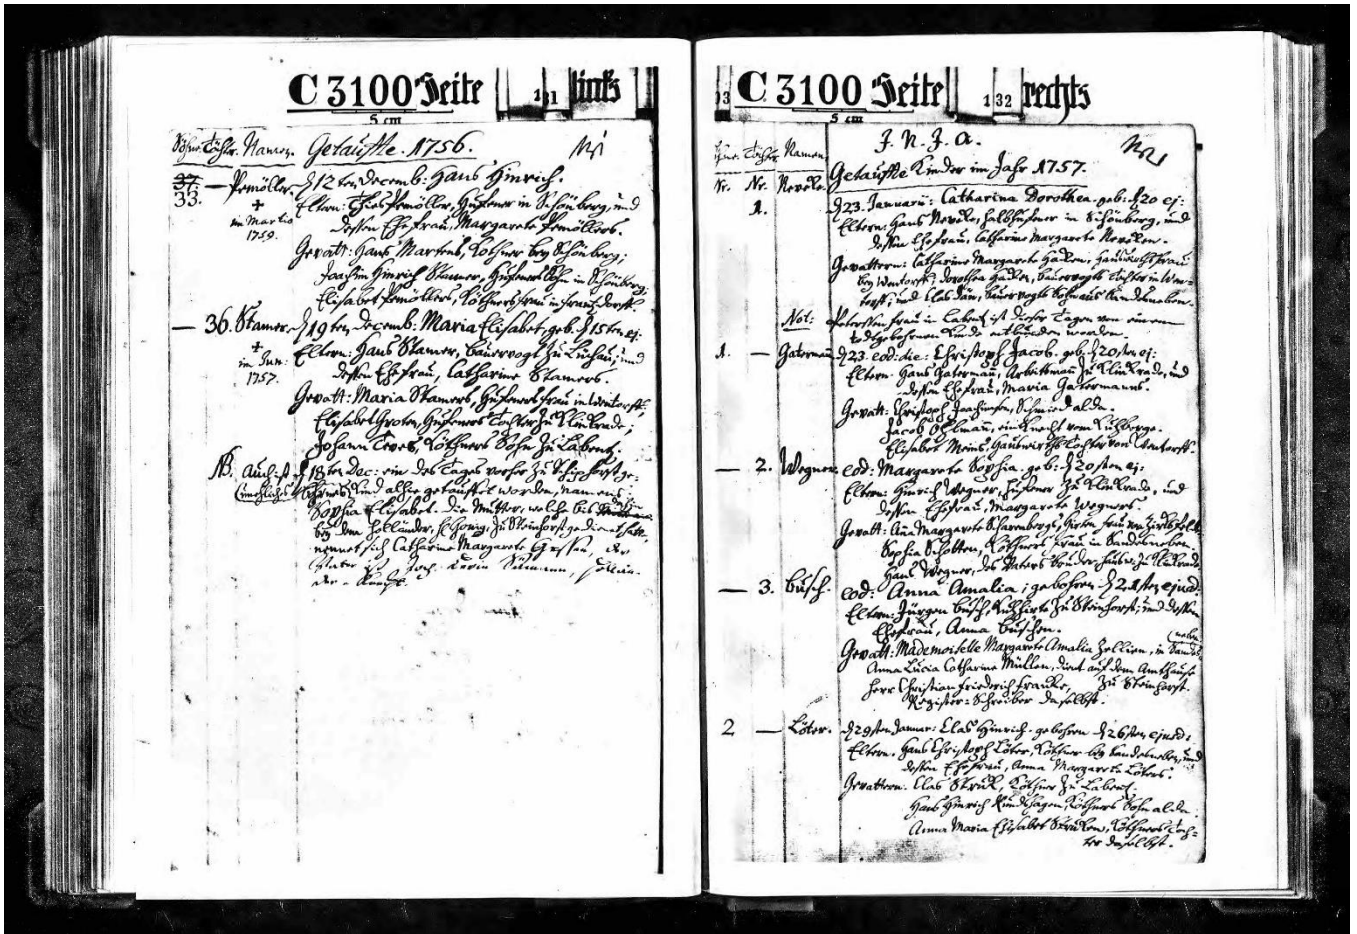 C 3100 Seite 131 links
5 cm
Söhne. Töchtr. Namen. Getauffte. 1756.
37. — Pemöller. d 12ten Decemb: Hans Hinrich.
33. Eltern: Thies Pemöller, Hufener in Schönberg, und
+ im Martio dessen Ehefrau, Margarete Pemöllers.
1759. Gevatt: Hans Martens, Köthner bey Schönberg;
Joachim Hinrich Stamer, Hufeners Sohn in Schönberg;
Elisabet Pemöllers, Köthners Frau in Franzdorff.
— 36. Stamer. d 19ten Decemb: Maria Elisabet, geb. d 15ten ej.
+ Eltern: Hans Stamer, Bauervogt zu Linau, und
im Jun: dessen Ehefrau, Catharine Stamers.
1757. Gevatt: Maria Stamers, Hufeners Frau in Wentorff.
Elisabet Groten, Hufeners Tochter zu Klinkrade;
Johann Teves, Köthners Sohn zu Labentz.
NB. Auch ist d 18ten Dec: ein des Tages vorher zu Schiphorst ge-
und alhie getauffet worden, namens
Sophia Elisabet. Die Mutter, welche bis
bey dem Holländer, H. Honig, zu Steinhorst gedienet hat,
nennet sich Catharine Margarete
Vater ist Joch.
C 3100 Seite 132 rechts
5 cm
J. N. J. A.
Töchtr. Namen Getauffte Kinder im Jahr 1757.
Nr. Nr. Neveke.
1. d 23. Januarii: Catharina Dorothea. geb: d 20 ej:
Eltern: Hans Neveke, Halbhufener in Schönberg, und
dessen Ehefrau, Catharine Margarete Neveken.
Gevattern: Catharine Margarete Hacken,
bey Wentorff; Dorothea Hacken, Bauervogts Tochter in Wen-
torff; und Clas Dän, Bauervogts Sohn aus Sandesneben.
Not: Petersen Frau in Labentz ist dieser Tagen von einem
todtgebohrnen Kinde entbunden worden.
1. — Gaterman. d 23. eod: die: Christoph Jacob. geb: d 20sten ej:
Eltern. Hans Gaterman, Arbeitsman zu Klinkrade, und
dessen Ehefrau, Maria Gatermanns.
Gevatt: Christoph Joachim, Schmied alda.
Jacob Ohlman, ein Knecht vom Kühberge.
Elisabet Meins, Tochter von Wentorff.
— 2. Wegner. eod: Margarete Sophia. geb: d 20sten ej:
Eltern: Hinrich Wegner, Hufener zu Klinkrade, und
dessen Ehefrau, Margarete Wegners.
Gevatt: Ana Margarete Scharenbergs, Hirten Frau
Sophia Scholten, Köthners Frau in Sandesneben.
Hans Wegner, des Vaters Bruder, zu Klinkrade
— 3. Busch. eod: Anna Amalia; gebohren d 21sten ejusd:
Eltern: Jürgen Busch, Kuhhirte zu Steinhorst; und dessen
Ehefrau, Anna Buschen.
(neben
Gevatt: Mademoiselle Margarete Amalia Zellien, in Sandes
Anna Lucia Catharina Müllen, dient auf dem Amthause
Herr Christian Friederich Francke, zu Steinhorst.
Register-Schreiber daselbst.
2 — Löter. d 29sten Januar: Clas Hinrich. gebohren d 26sten ejusd:
Eltern. Hans Christoph Löter, Köthner bey Sandesneben, und
dessen Ehefrau, Anna Margareta Löters.
Gevattern: Clas Struk, Köthner zu Labentz.
Hans Hinrich Rundshagen Köthners Sohn alda
Anna Maria Elisabet Struken, Köthners Toch-
ter daselbst.